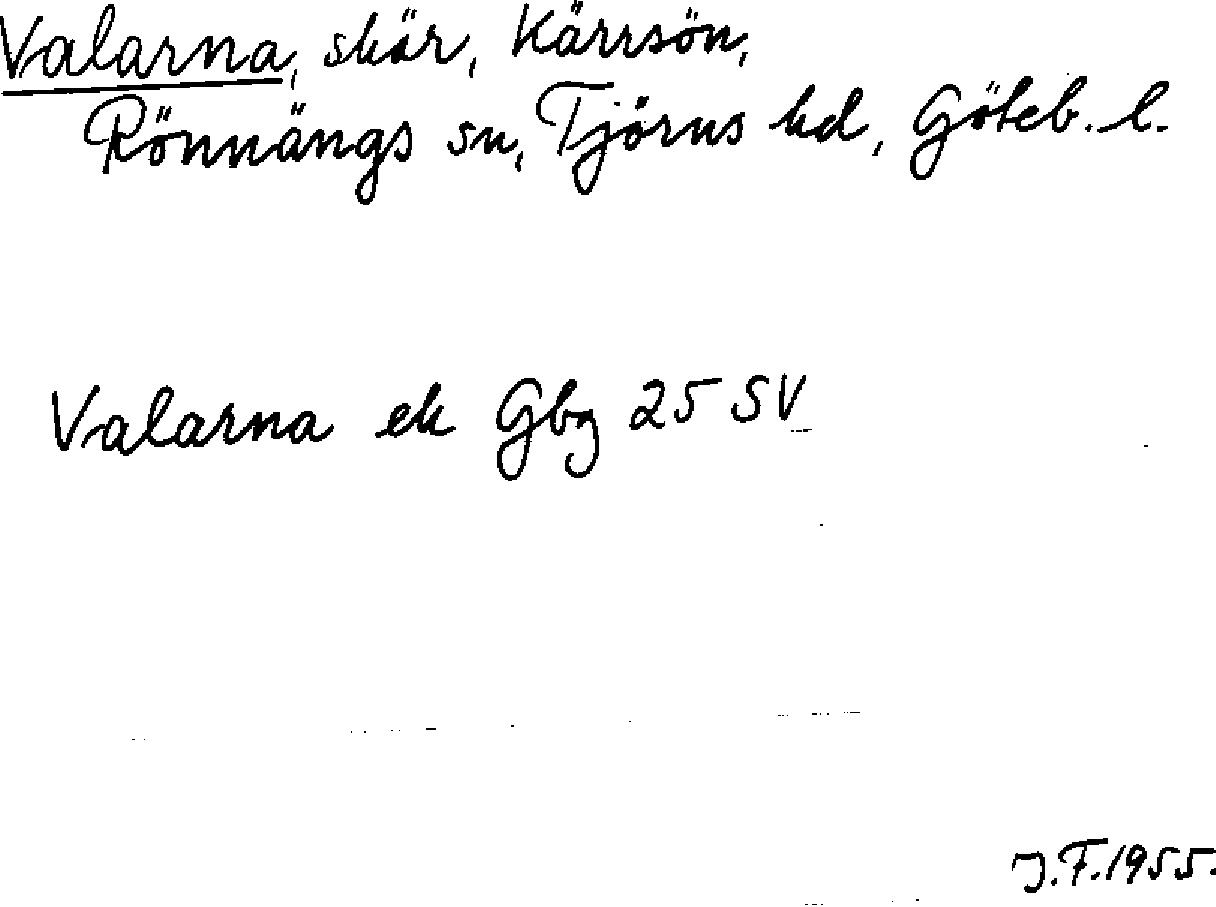 Valarna, skär, Kärrsön,
Rönnängs sn, Tjörns hd, Göteb. l.
Valarna ek Gbg 25 SV
J.F. 1955.